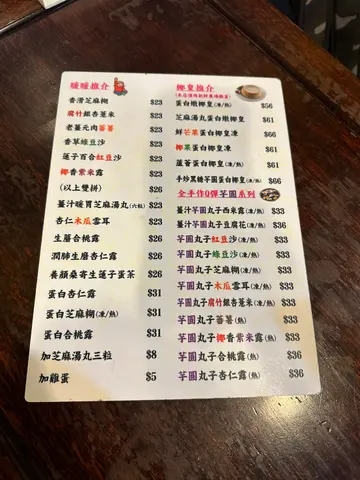 暖暖推介
香滑芝麻糊 $23
腐竹銀杏薏米 $23
老薑元肉蕃薯 $23
香草綠豆沙 $23
蓮子百合紅豆沙 $23
椰香紫米露 $23
(以上雙拼) $26
薑汁暖胃芝麻湯丸(六粒) $23
杏仁木瓜雪耳 $23
生磨合桃露 $26
潤肺生磨杏仁露 $26
養顏桑寄生蓮子蛋茶 $26
蛋白杏仁露 $31
蛋白芝麻糊(凍/熱) $31
蛋白合桃露 $31
加芝麻湯丸三粒 $8
加雞蛋 $5
椰皇推介
蛋白燉椰皇(凍/熱) $56
芝麻湯丸蛋白燉椰皇 $61
鮮芒果蛋白椰皇凍 $66
椰果蛋白椰皇(凍/熱) $61
蘆薈蛋白椰皇(凍/熱) $61
手炒黑糖芋圓蛋白椰皇(凍/熱) $66
全手作Q彈芋圓系列
薑汁芋圓丸子西米露(凍/熱) $33
薑汁芋圓丸子豆腐花(凍/熱) $36
芋圓丸子紅豆沙(凍/熱) $33
芋圓丸子綠豆沙(凍/熱) $33
芋圓丸子芝麻糊(凍/熱) $33
芋圓丸子木瓜雪耳(凍/熱) $33
芋圓丸子腐竹銀杏薏米(凍/熱) $33
芋圓丸子蕃薯(熱) $33
芋圓丸子椰香紫米露(凍/熱) $33
芋圓丸子合桃露(凍/熱) $36
芋圓丸子杏仁露(凍/熱) $36